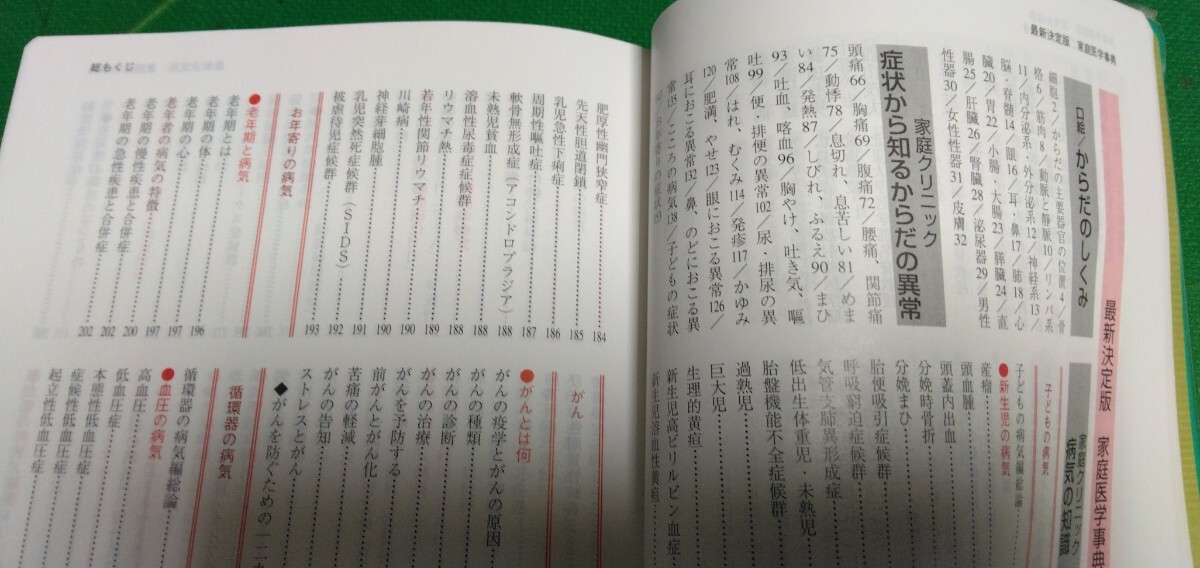 最新決定版 家庭医学事典
最新決定版 家庭医学事典
口絵/からだのしくみ
細胞2/からだの主要器官の位置4/骨
格6/筋肉8/動脈と静脈10/リンパ系
11/内分泌系・外分泌系12/神経系13/
脳・脊髄14/眼16/耳・鼻17/肺18/心
臓20/胃22/小腸・大腸23/膵臓24/直
腸25/肝臓26/腎臓28/泌尿器29/男性
性器30/女性性器31/皮膚32
家庭クリニック
症状から知るからだの異常
頭痛66/胸痛69/腹痛72/腰痛、関節痛
75/動悸78/息切れ、息苦しい81/めま
い84/発熱87/しびれ、ふるえ90/まひ
93/吐血、喀血96/胸やけ、吐き気、嘔
吐99/便・排便の異常102/尿・排尿の異
常108/はれ、むくみ114/発疹117/かゆみ
120/肥満、やせ123/眼におこる異常126/
耳におこる異常132/鼻、のどにおこる異
常135/こころの病気138/子どもの症状
家庭クリニック
病気の知識
子どもの病気
子どもの病気編総論
●新生児の病気
産瘤
頭血腫
頭蓋内出血
分娩時骨折
分娩まひ
胎便吸引症候群
呼吸窮迫症候群
気管支肺異形成症
低出生体重児・未熟児
胎盤機能不全症候群
過熟児
巨大児
生理的黄疸
新生児高ビリルビン血症
新生児溶血性黄疸
総もくじ
肥厚性幽門狭窄症 184
先天性胆道閉鎖 185
乳児急性下痢症 186
周期性嘔吐症 187
軟骨無形成症（アコンドロプラジア） 188
未熟児貧血 188
溶血性尿毒症症候群 188
リウマチ熱 189
若年性関節リウマチ 189
川崎病 190
神経芽細胞腫 190
乳児突然死症候群（SIDS） 191
被虐待児症候群 192
お年寄りの病気 193
●老年期と病気
老年期とは 196
老年期の体 197
老年期の心 197
老年者の病気の特徴 200
老年期の慢性疾患と合併症 202
老年期の急性疾患と合併症 202
がん
●がんとは何
がんの疫学とがんの原因
がんの種類
がんの診断
がんの治療
がんを予防する
前がんとがん化
苦痛の軽減
がんの告知
ストレスとがん
◆がんを防ぐための一二か
循環器の病気
循環器の病気編総論
●血圧の病気
高血圧
低血圧症
本態性低血圧症
症候性低血圧症
起立性低血圧症